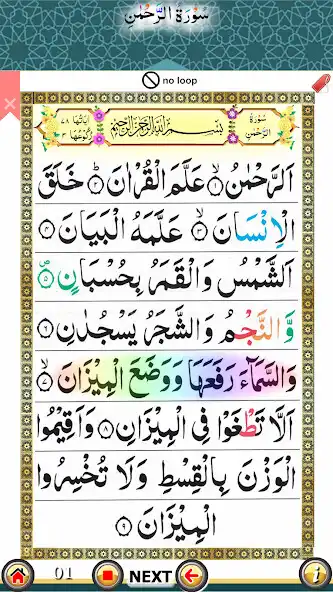 سُوْرَةُ الرَّحْمٰنِ
no loop
اٰيَاتُهَا ٧٨ بِسْمِ اللّٰهِ الرَّحْمٰنِ الرَّحِيْمِ سُوْرَةُ
رُكُوْعُهَا ٣ الرَّحْمٰنِ
اَلرَّحْمٰنُ ۙ﴿۱﴾ عَلَّمَ الْقُرْاٰنَ ؕ﴿۲﴾ خَلَقَ
الْاِنْسَانَ ۙ﴿۳﴾ عَلَّمَهُ الْبَيَانَ ﴿۴﴾
اَلشَّمْسُ وَالْقَمَرُ بِحُسْبَانٍ ۪﴿۵﴾
وَّ النَّجْمُ وَالشَّجَرُ يَسْجُدٰنِ ﴿۶﴾
وَالسَّمَآءَ رَفَعَهَا وَوَضَعَ الْمِيْزَانَ ۙ﴿۷﴾
اَلَّا تَطْغَوْا فِى الْمِيْزَانِ ﴿۸﴾ وَاَقِيْمُوا
الْوَزْنَ بِالْقِسْطِ وَلَا تُخْسِرُوا
الْمِيْزَانَ ﴿۹﴾
01 NEXT i